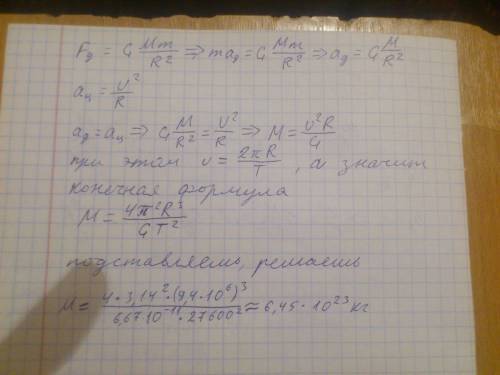 Fд = G Mm/R² ⇒ maд = G Mm/R² ⇒ aд = G M/R²
aц = υ²/R
aд = aц ⇒ G M/R² = υ²/R ⇒ M = υ²R/G
при этом υ = 2πR/T , а значит
конечная формула
M = 4π²R³/GT²
подставляешь, решаешь
M = 4·3,14²·(9,4·10⁶)³/6,67·10⁻¹¹·27600² ≈ 6,45·10²³ кг